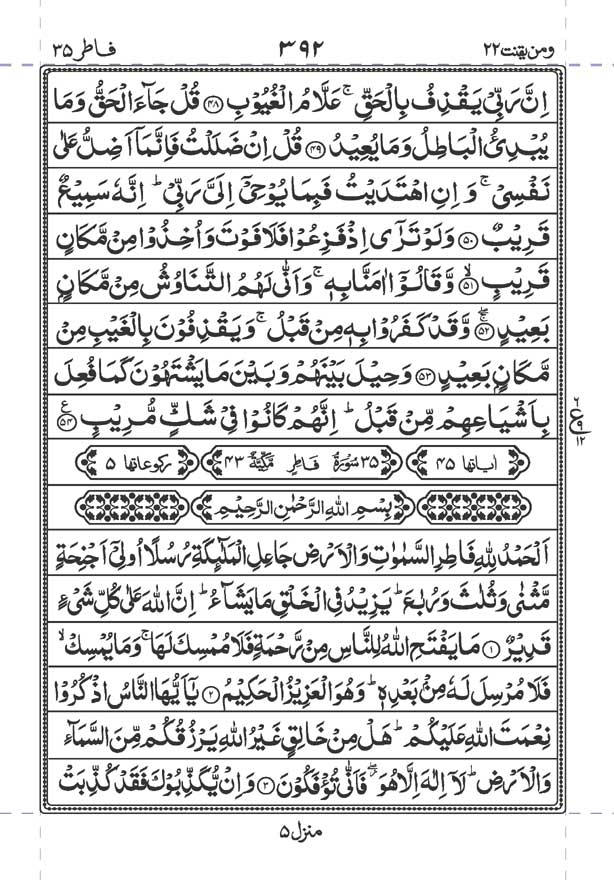 ومن یقنت ۲۲ ۳۹۲ فاطر ۳۵
اِنَّ رَبِّیْ یَقْذِفُ بِالْحَقِّ ۚ عَلَّامُ الْغُیُوْبِ ﴿۴۸﴾ قُلْ جَآءَ الْحَقُّ وَمَا
یُبْدِئُ الْبَاطِلُ وَمَا یُعِیْدُ ﴿۴۹﴾ قُلْ اِنْ ضَلَلْتُ فَاِنَّمَاۤ اَضِلُّ عَلٰی
نَفْسِیْ ۚ وَ اِنِ اهْتَدَیْتُ فَبِمَا یُوْحِیْۤ اِلَیَّ رَبِّیْ ؕ اِنَّهٗ سَمِیْعٌ
قَرِیْبٌ ﴿۵۰﴾ وَلَوْ تَرٰۤی اِذْ فَزِعُوْا فَلَا فَوْتَ وَاُخِذُوْا مِنْ مَّكَانٍ
قَرِیْبٍ ﴿ۙ۵۱﴾ وَّقَالُوْۤا اٰمَنَّا بِهٖ ۚ وَاَنّٰی لَهُمُ التَّنَاوُشُ مِنْ مَّكَانٍۭ
بَعِیْدٍ ﴿ۚۖ۵۲﴾ وَّقَدْ كَفَرُوْا بِهٖ مِنْ قَبْلُ ۚ وَیَقْذِفُوْنَ بِالْغَیْبِ مِنْ
مَّكَانٍۭ بَعِیْدٍ ﴿۵۳﴾ وَحِیْلَ بَیْنَهُمْ وَبَیْنَ مَا یَشْتَهُوْنَ كَمَا فُعِلَ
بِاَشْیَاعِهِمْ مِّنْ قَبْلُ ؕ اِنَّهُمْ كَانُوْا فِیْ شَكٍّ مُّرِیْبٍ ﴿۵۴﴾ ع
۶ ۹ ۱۲
اٰیاتها ۴۵ ۳۵ سُوْرَةُ فَاطِرٍ مَّكِّیَّةٌ ۴۳ ركوعاتها ۵
بِسْمِ اللهِ الرَّحْمٰنِ الرَّحِیْمِ
اَلْحَمْدُ لِلّٰهِ فَاطِرِ السَّمٰوٰتِ وَالْاَرْضِ جَاعِلِ الْمَلٰٓئِكَةِ رُسُلًا اُولِیْۤ اَجْنِحَةٍ
مَّثْنٰی وَثُلٰثَ وَرُبٰعَ ؕ یَزِیْدُ فِی الْخَلْقِ مَا یَشَآءُ ؕ اِنَّ اللهَ عَلٰی كُلِّ شَیْءٍ
قَدِیْرٌ ﴿۱﴾ مَا یَفْتَحِ اللهُ لِلنَّاسِ مِنْ رَّحْمَةٍ فَلَا مُمْسِكَ لَهَا ۚ وَمَا یُمْسِكْ ۙ
فَلَا مُرْسِلَ لَهٗ مِنْۢ بَعْدِهٖ ؕ وَهُوَ الْعَزِیْزُ الْحَكِیْمُ ﴿۲﴾ یٰۤاَیُّهَا النَّاسُ اذْكُرُوْا
نِعْمَتَ اللهِ عَلَیْكُمْ ؕ هَلْ مِنْ خَالِقٍ غَیْرُ اللهِ یَرْزُقُكُمْ مِّنَ السَّمَآءِ
وَالْاَرْضِ ؕ لَاۤ اِلٰهَ اِلَّا هُوَ ۖؗ فَاَنّٰی تُؤْفَكُوْنَ ﴿۳﴾ وَاِنْ یُّكَذِّبُوْكَ فَقَدْ كُذِّبَتْ
منزل ۵